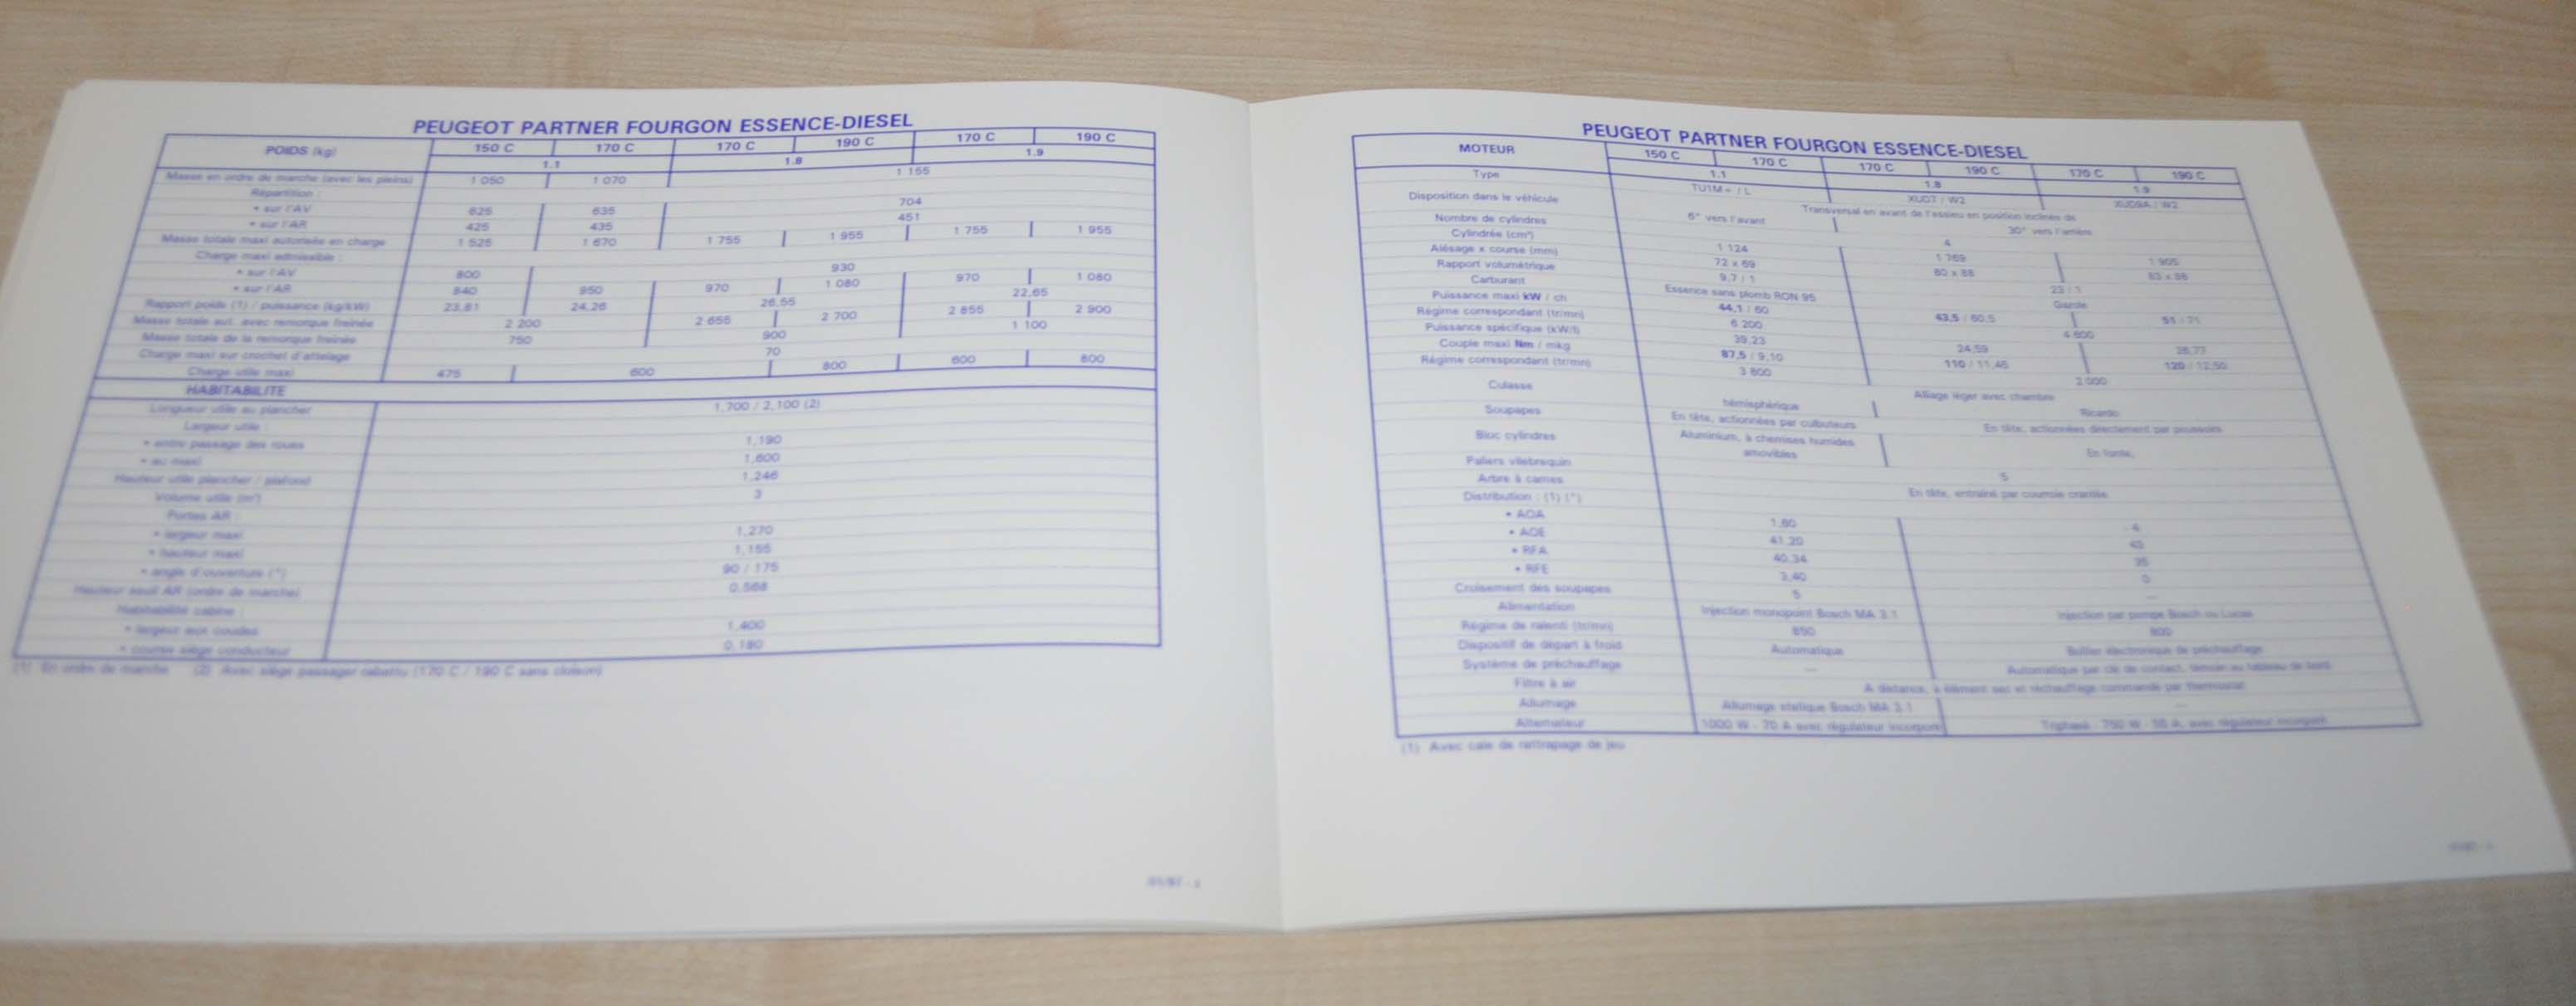 PEUGEOT PARTNER FOURGON ESSENCE-DIESEL
POIDS (kg) 150 C 170 C 170 C 190 C 170 C 190 C
1.1 1.8 1.9
Masse en ordre de marche (avec les pleins) 1 050 1 070 1 155
Répartition :
• sur l'AV 625 635 704
• sur l'AR 425 435 451
Masse totale maxi autorisée en charge 1 525 1 670 1 755 1 955 1 755 1 955
Charge maxi admissible :
• sur l'AV 800 930
• sur l'AR 840 950 970 1 080 970 1 080
Rapport poids (1) / puissance (kg/kW) 23,81 24,26 26,55 22,65
Masse totale aut. avec remorque freinée 2 200 2 655 2 700 2 855 2 900
Masse totale de la remorque freinée 750 900 1 100
Charge maxi sur crochet d'attelage 70
Charge utile maxi 475 600 800 600 800
HABITABILITE
Longueur utile au plancher 1,700 / 2,100 (2)
Largeur utile :
• entre passage des roues 1,190
• au maxi 1,600
Hauteur utile plancher / plafond 1,246
Volume utile (m³) 3
Portes AR :
• largeur maxi 1,270
• hauteur maxi 1,155
• angle d'ouverture (°) 90 / 175
Hauteur seuil AR (ordre de marche) 0,568
Habitabilité cabine :
• largeur aux coudes 1,400
• course siège conducteur 0,180
(1) En ordre de marche (2) Avec siège passager rabattu (170 C / 190 C sans cloison)
PEUGEOT PARTNER FOURGON ESSENCE-DIESEL
MOTEUR 150 C 170 C 170 C 190 C 170 C 190 C
1.1 1.8 1.9
Type TU1M + / L XUD7 / W2 XUD9A / W2
Disposition dans le véhicule Transversal en avant de l'essieu en position inclinée de
6° vers l'avant 30° vers l'arrière
Nombre de cylindres 4
Cylindrée (cm³) 1 124 1 769 1 905
Alésage x course (mm) 72 x 69 80 x 88 83 x 88
Rapport volumétrique 9,7 / 1 23 / 1
Carburant Essence sans plomb RON 95
Puissance maxi kW / ch 44,1 / 60 43,5 / 60,5 51 / 71
Régime correspondant (tr/mn) 6 200 4 600
Puissance spécifique (kW/l) 39,23 24,59 26,77
Couple maxi Nm / mkg 87,5 / 9,10 110 / 11,45 120 / 12,50
Régime correspondant (tr/mn) 3 800 2 000
Culasse Alliage léger avec chambre
hémisphérique Ricardo
Soupapes En tête, actionnées par culbuteurs En tête, actionnées directement par poussoirs
Bloc cylindres Aluminium, à chemises humides
amovibles En fonte.
Paliers vilebrequin 5
Arbre à cames En tête, entraîné par courroie crantée
Distribution : (1) (°)
• AOA 1,60 4
• AOE 41,20 40
• RFA 40,34 35
• RFE 3,40 0
Cruisement des soupapes 5 —
Alimentation Injection monopoint Bosch MA 3.1 Injection par pompe Bosch ou Lucas
Régime de ralenti (tr/mn) 850 800
Dispositif de départ à froid Automatique Boîtier électronique de préchauffage
Système de préchauffage — Automatique par clé de contact, témoin au tableau de bord
Filtre à air A distance, à élément sec et réchauffage commandé par thermostat
Allumage Allumage statique Bosch MA 3.1 —
Alternateur 1000 W - 70 A avec régulateur incorporé Triphasé - 750 W - 55 A, avec régulateur incorporé
(1) Avec cale de rattrapage de jeu